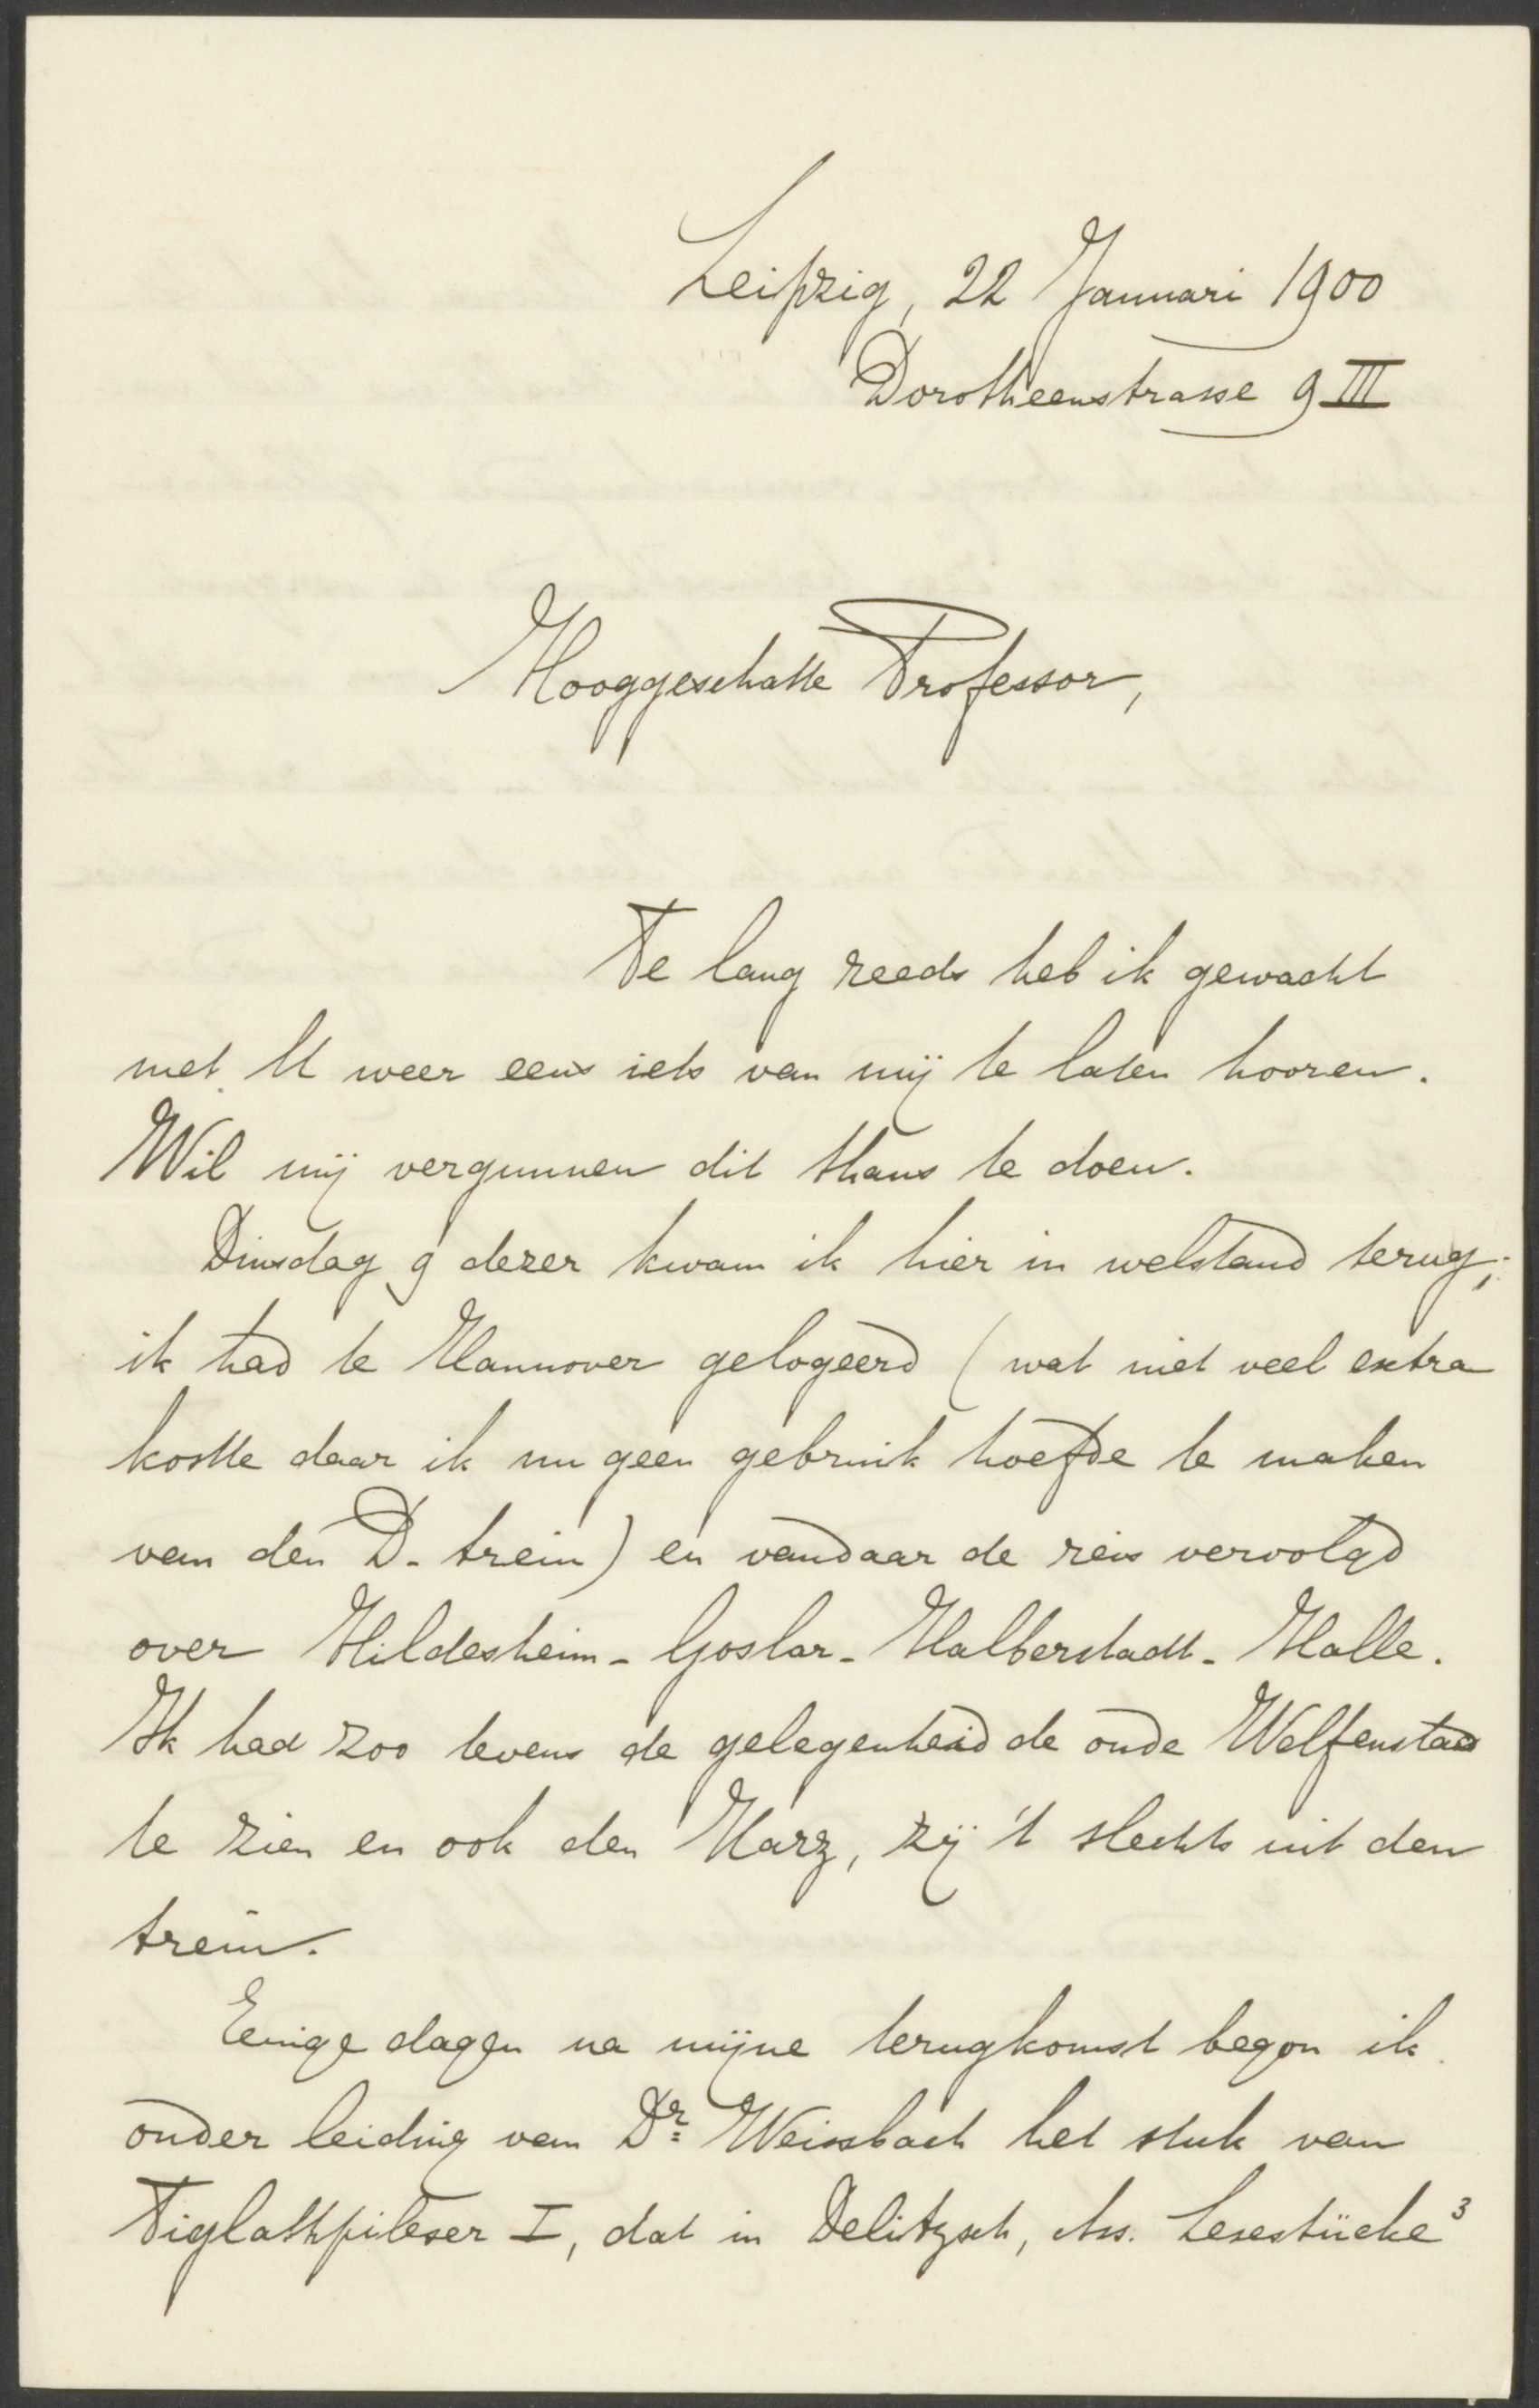 Leipzig, 22 Januari 1900
Dorotheenstrasse 9 III
Hooggeschatte Professor,
Te lang reeds heb ik gewacht
met U weer eens iets van mij te laten hooren.
Wil mij vergunnen dit thans te doen.
Dinsdag 9 dezer kwam ik hier in welstand terug;
ik had te Hannover gelogeerd (wat niet veel extra
kostte daar ik nu geen gebruik hoefde te maken
van den D-trein) en vandaar de reis vervolgd
over Hildesheim - Goslar - Halberstadt - Halle.
Ik had zoo tevens de gelegenheid de oude Welfenstad
te zien en ook den Harz, zij 't slechts uit den
trein.
Eenige dagen na mijne terugkomst begon ik
onder leiding van Dr Weissbach het stuk van
Tiglathpileser I, dat in Delitzsch, Ass. Lesestücke³